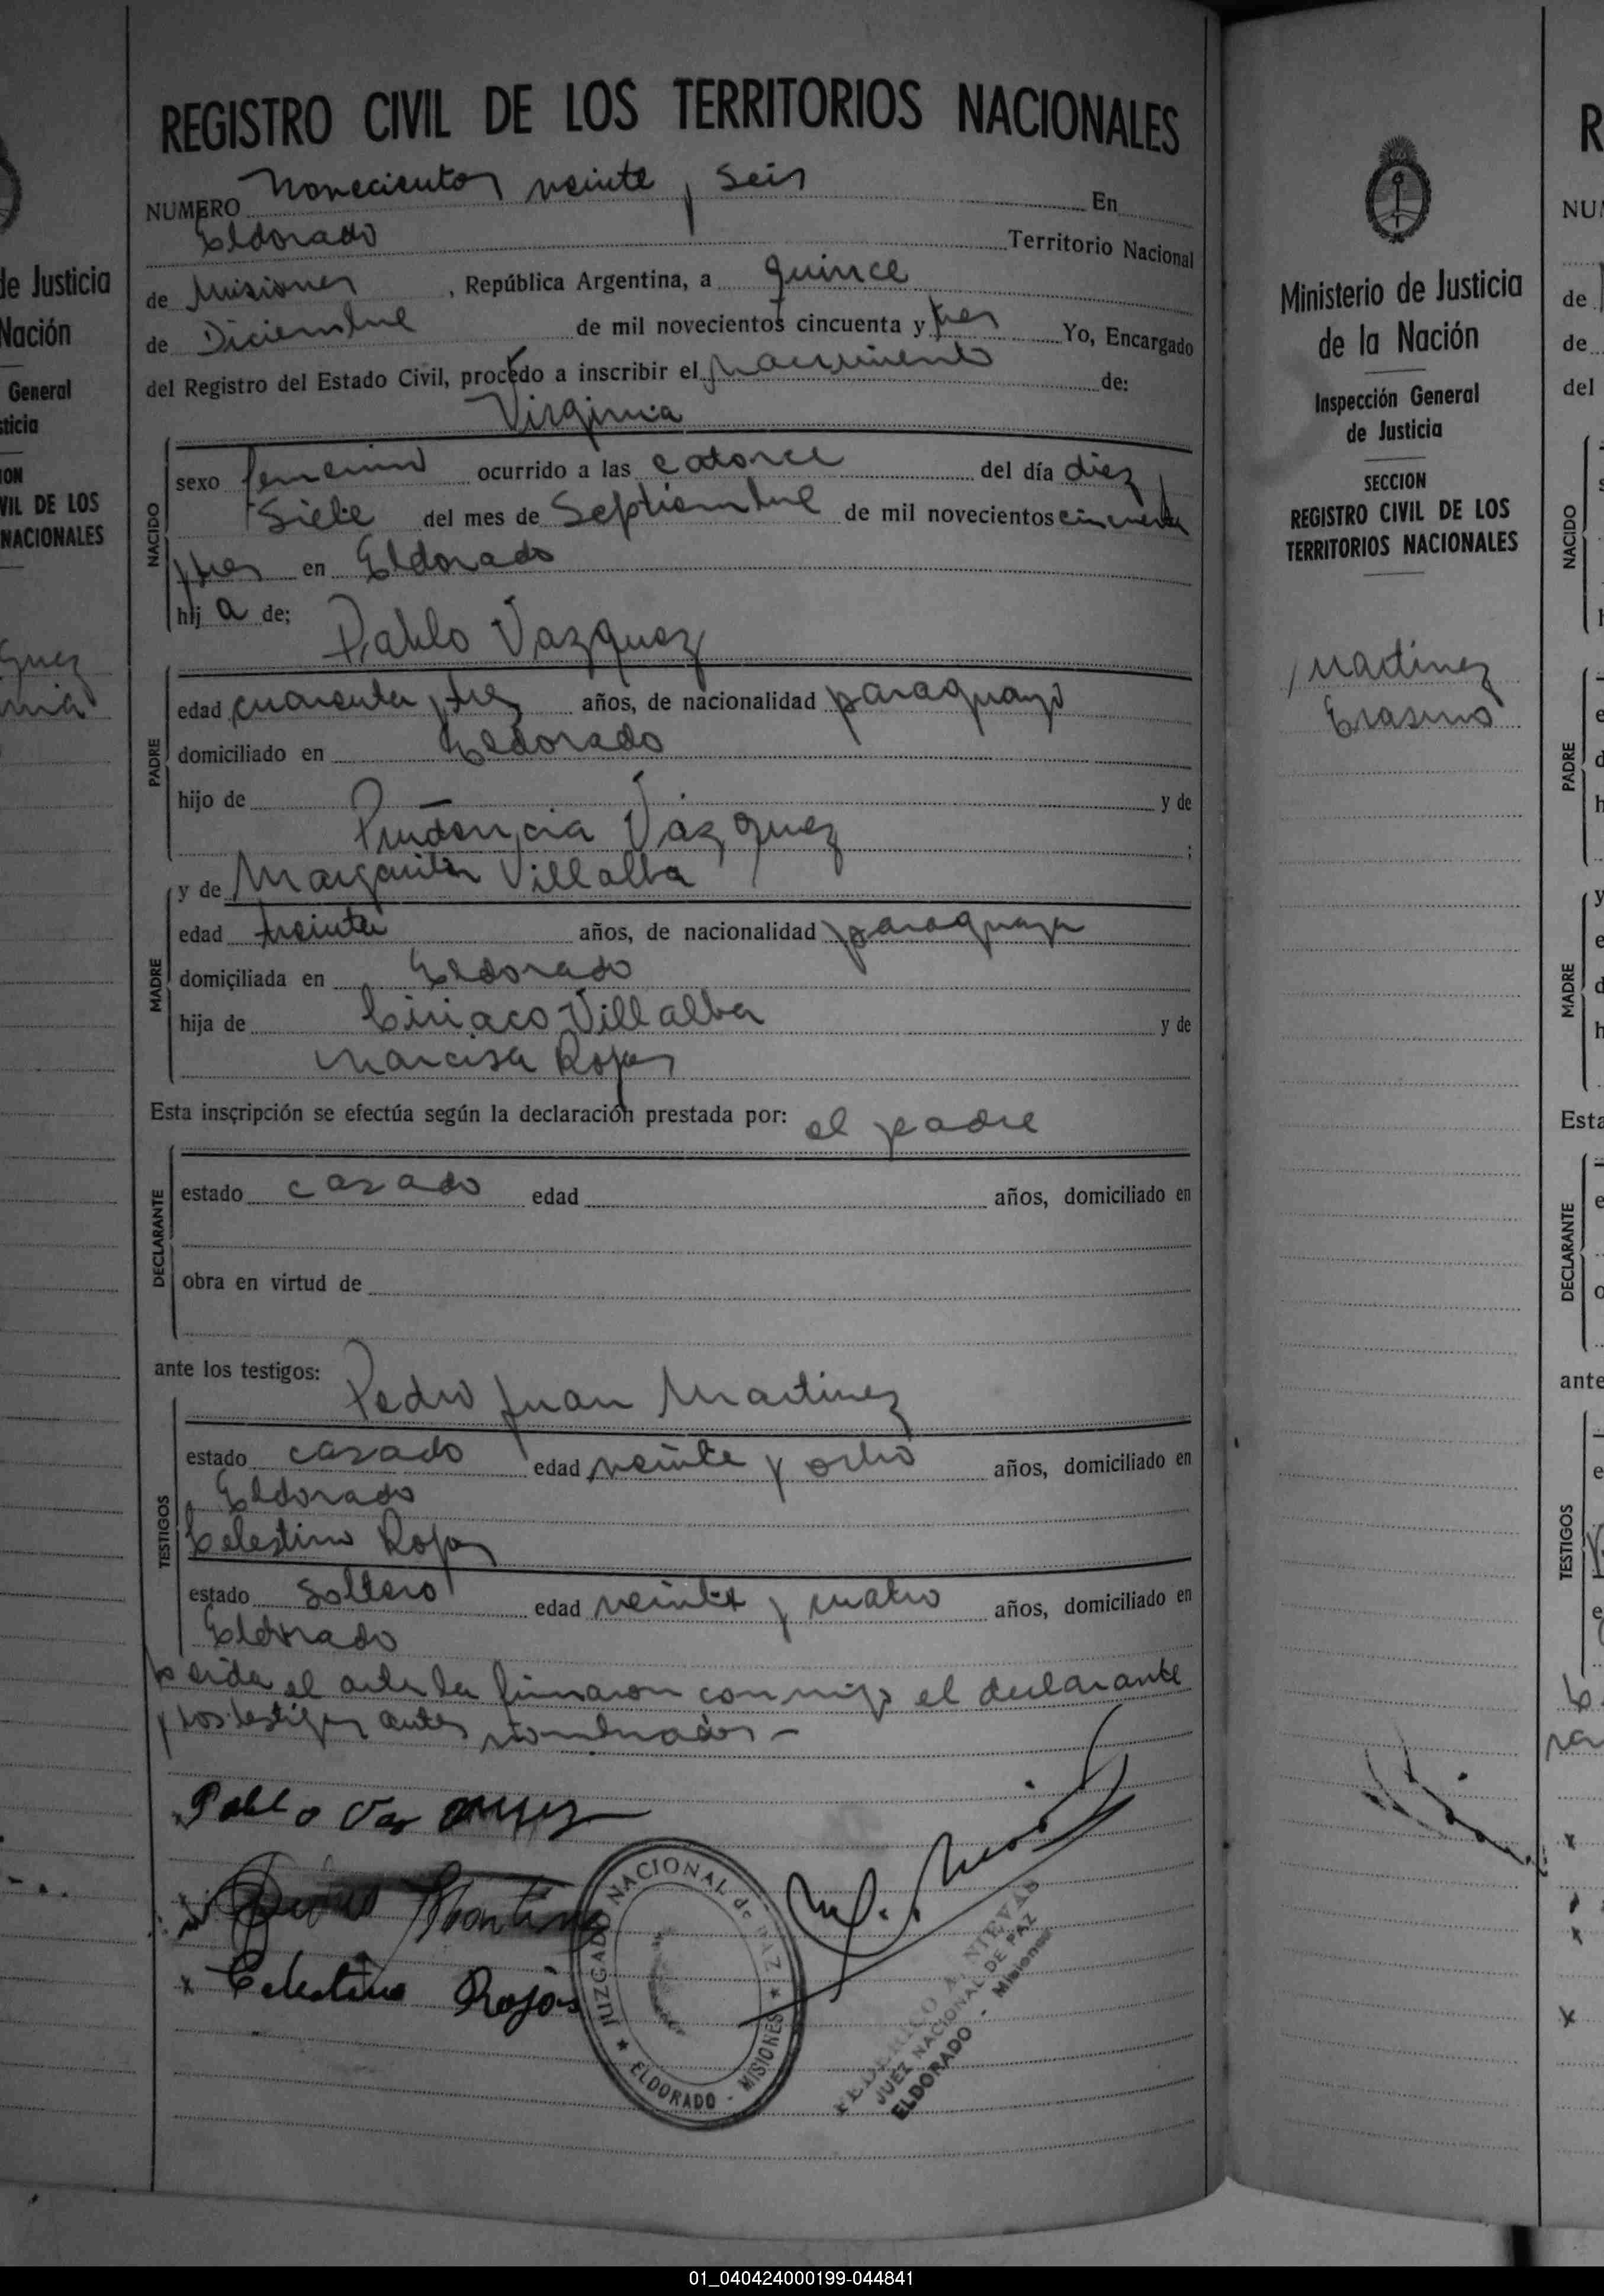 REGISTRO CIVIL DE LOS TERRITORIOS NACIONALES
NUMERO Novecientos veinte y seis En
Eldorado Territorio Nacional
de Misiones, República Argentina, a quince
de Diciembre de mil novecientos cincuenta y tres Yo, Encargado
del Registro del Estado Civil, procedo a inscribir el nacimiento de:
Virginia
NACIDO
sexo femenino ocurrido a las catorce del día diez y
Siete del mes de Septiembre de mil novecientos cincuenta
y tres en Eldorado
hij a de;
Pablo Vazquez
PADRE
edad cuarenta y tres años, de nacionalidad paraguayo
domiciliado en Eldorado
hijo de y de
Prudencia Vazquez ;
y de Margarita Villalba
MADRE
edad treinta años, de nacionalidad paraguaya
domiciliada en Eldorado
hija de Ciriaco Villalba y de
Narcisa Rojas
Esta inscripción se efectúa según la declaración prestada por: el padre
DECLARANTE
estado casado edad años, domiciliado en
obra en virtud de
ante los testigos:
Pedro Juan Martinez
TESTIGOS
estado casado edad veinte y ocho años, domiciliado en
Eldorado
Celestino Rojas
estado Soltero edad veinte y cuatro años, domiciliado en
Eldorado
Leida el acta la firmaron conmigo el declarante
y los testigos antes nombrados -
Pablo Vasquez
Celestino Rojas
JUZGADO NACIONAL de PAZ
ELDORADO - MISIONES
FEDERICO A. NIEVAS
JUEZ NACIONAL DE PAZ
ELDORADO - Misiones
Ministerio de Justicia
de la Nación
Inspección General
de Justicia
SECCION
REGISTRO CIVIL DE LOS
TERRITORIOS NACIONALES
Martinez
Erasmo
de Justicia
Nación
General
sticia
ION
VIL DE LOS
NACIONALES
R
NU
de
de
del
NACIDO
PADRE
MADRE
Esta
DECLARANTE
ante
TESTIGOS
01_040424000199-044841